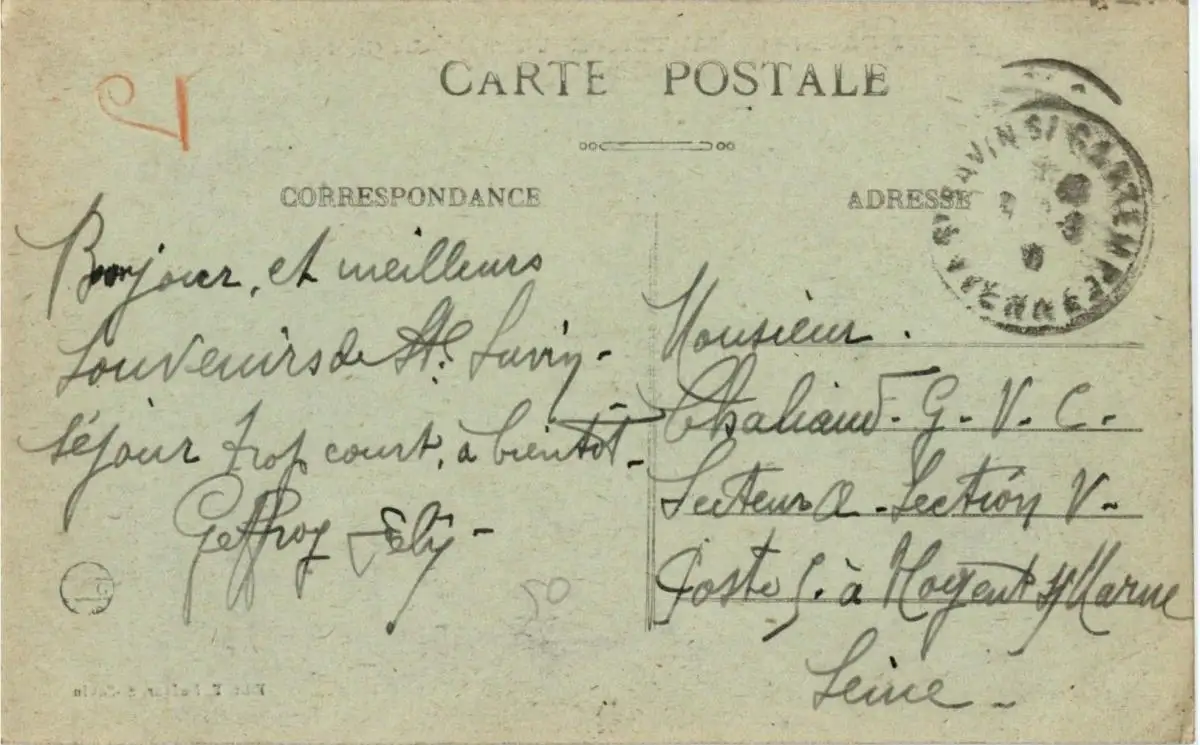 CARTE POSTALE
CORRESPONDANCE
ADRESSE
ST SAVIN S/ GARTEMPE
VIENNE
Bonjour, et meilleurs
souvenirs de St. Savin -
séjour trop court, à bientôt -
Geffroy
Monsieur.
Chaliaud - G. V. C.
Secteur - Section V -
Poste 5. à Nogent s/Marne
Seine -
50